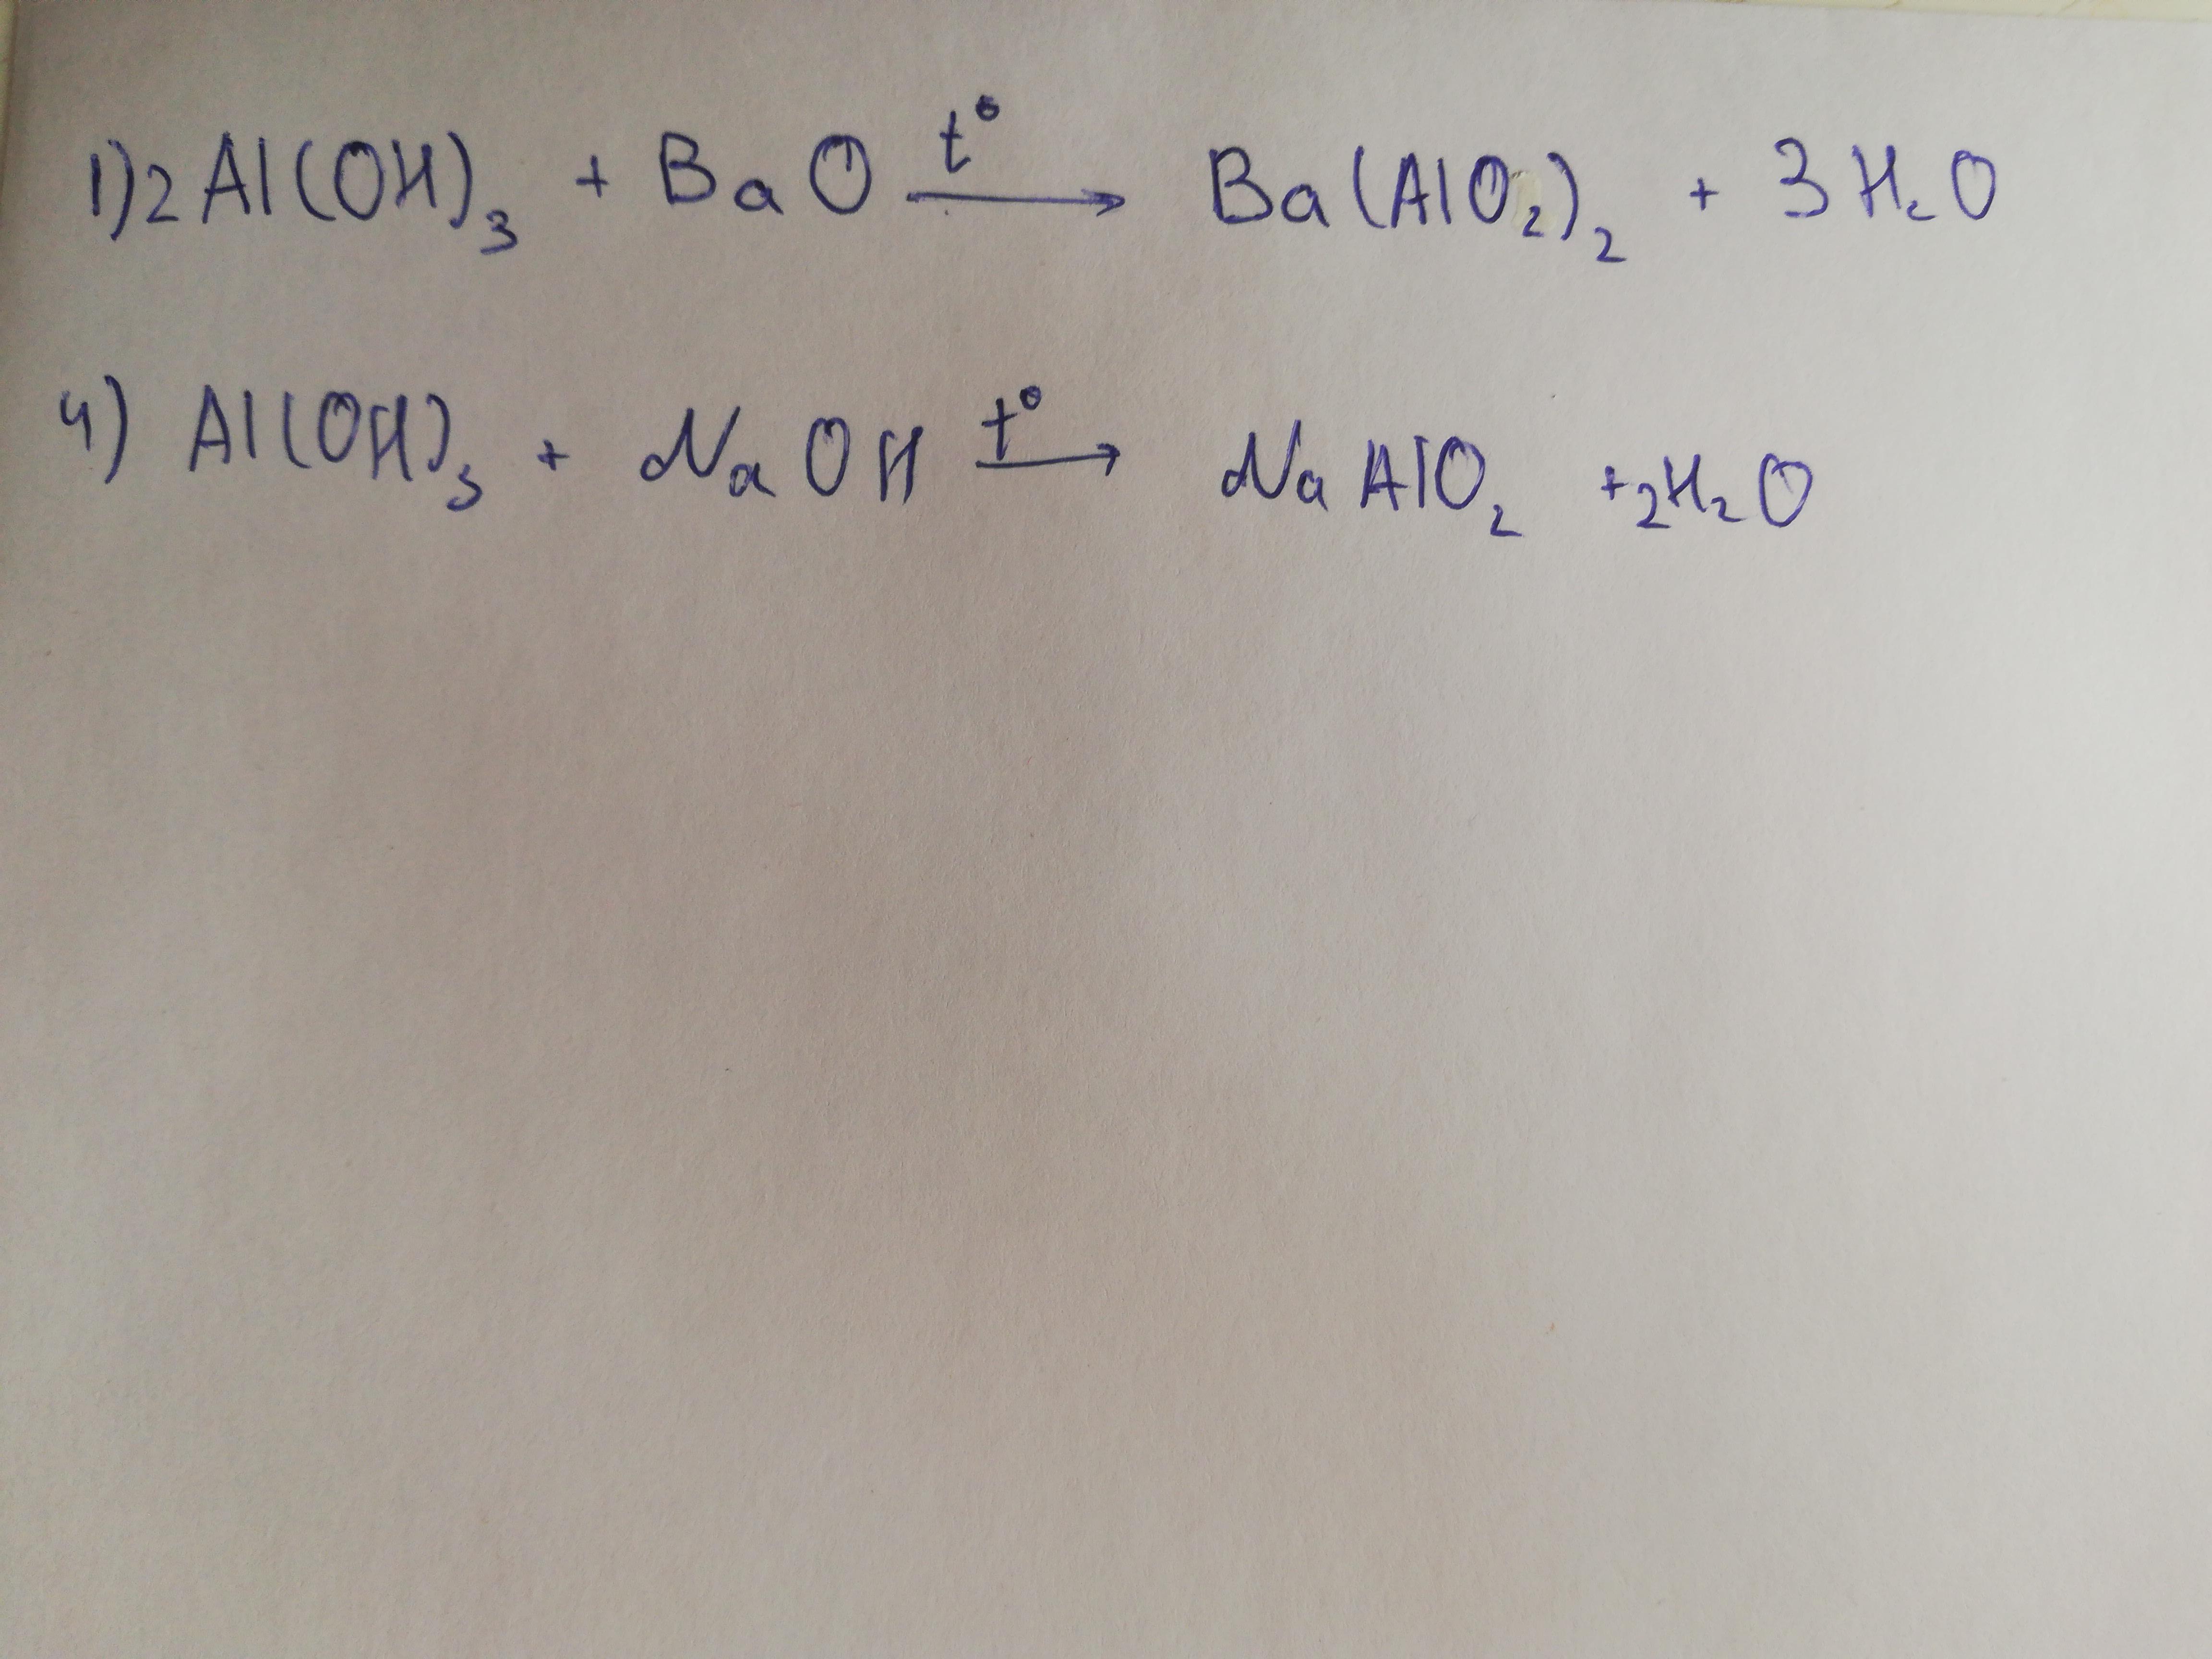 1) 2 Al(OH)₃ + BaO t° → Ba(AlO₂)₂ + 3H₂O
4) Al(OH)₃ + NaOH t° → NaAlO₂ + 2H₂O